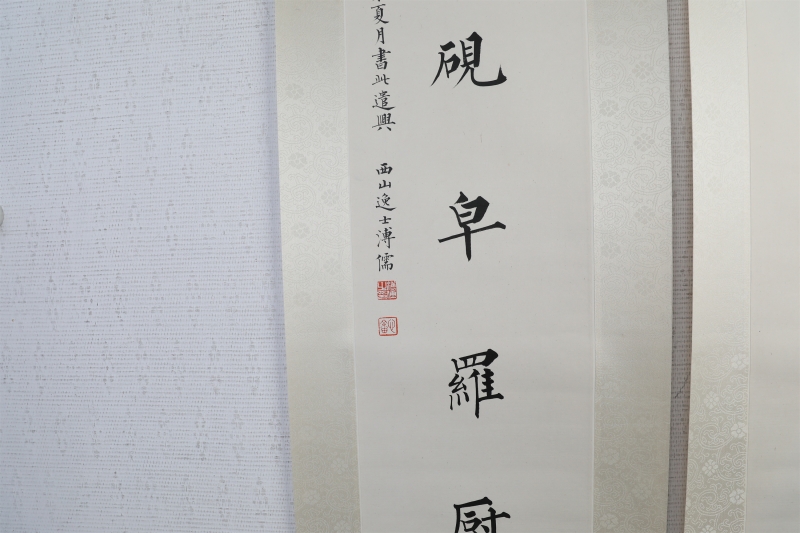 硯皁羅厨
夏月書此遣興 西山逸士溥儒